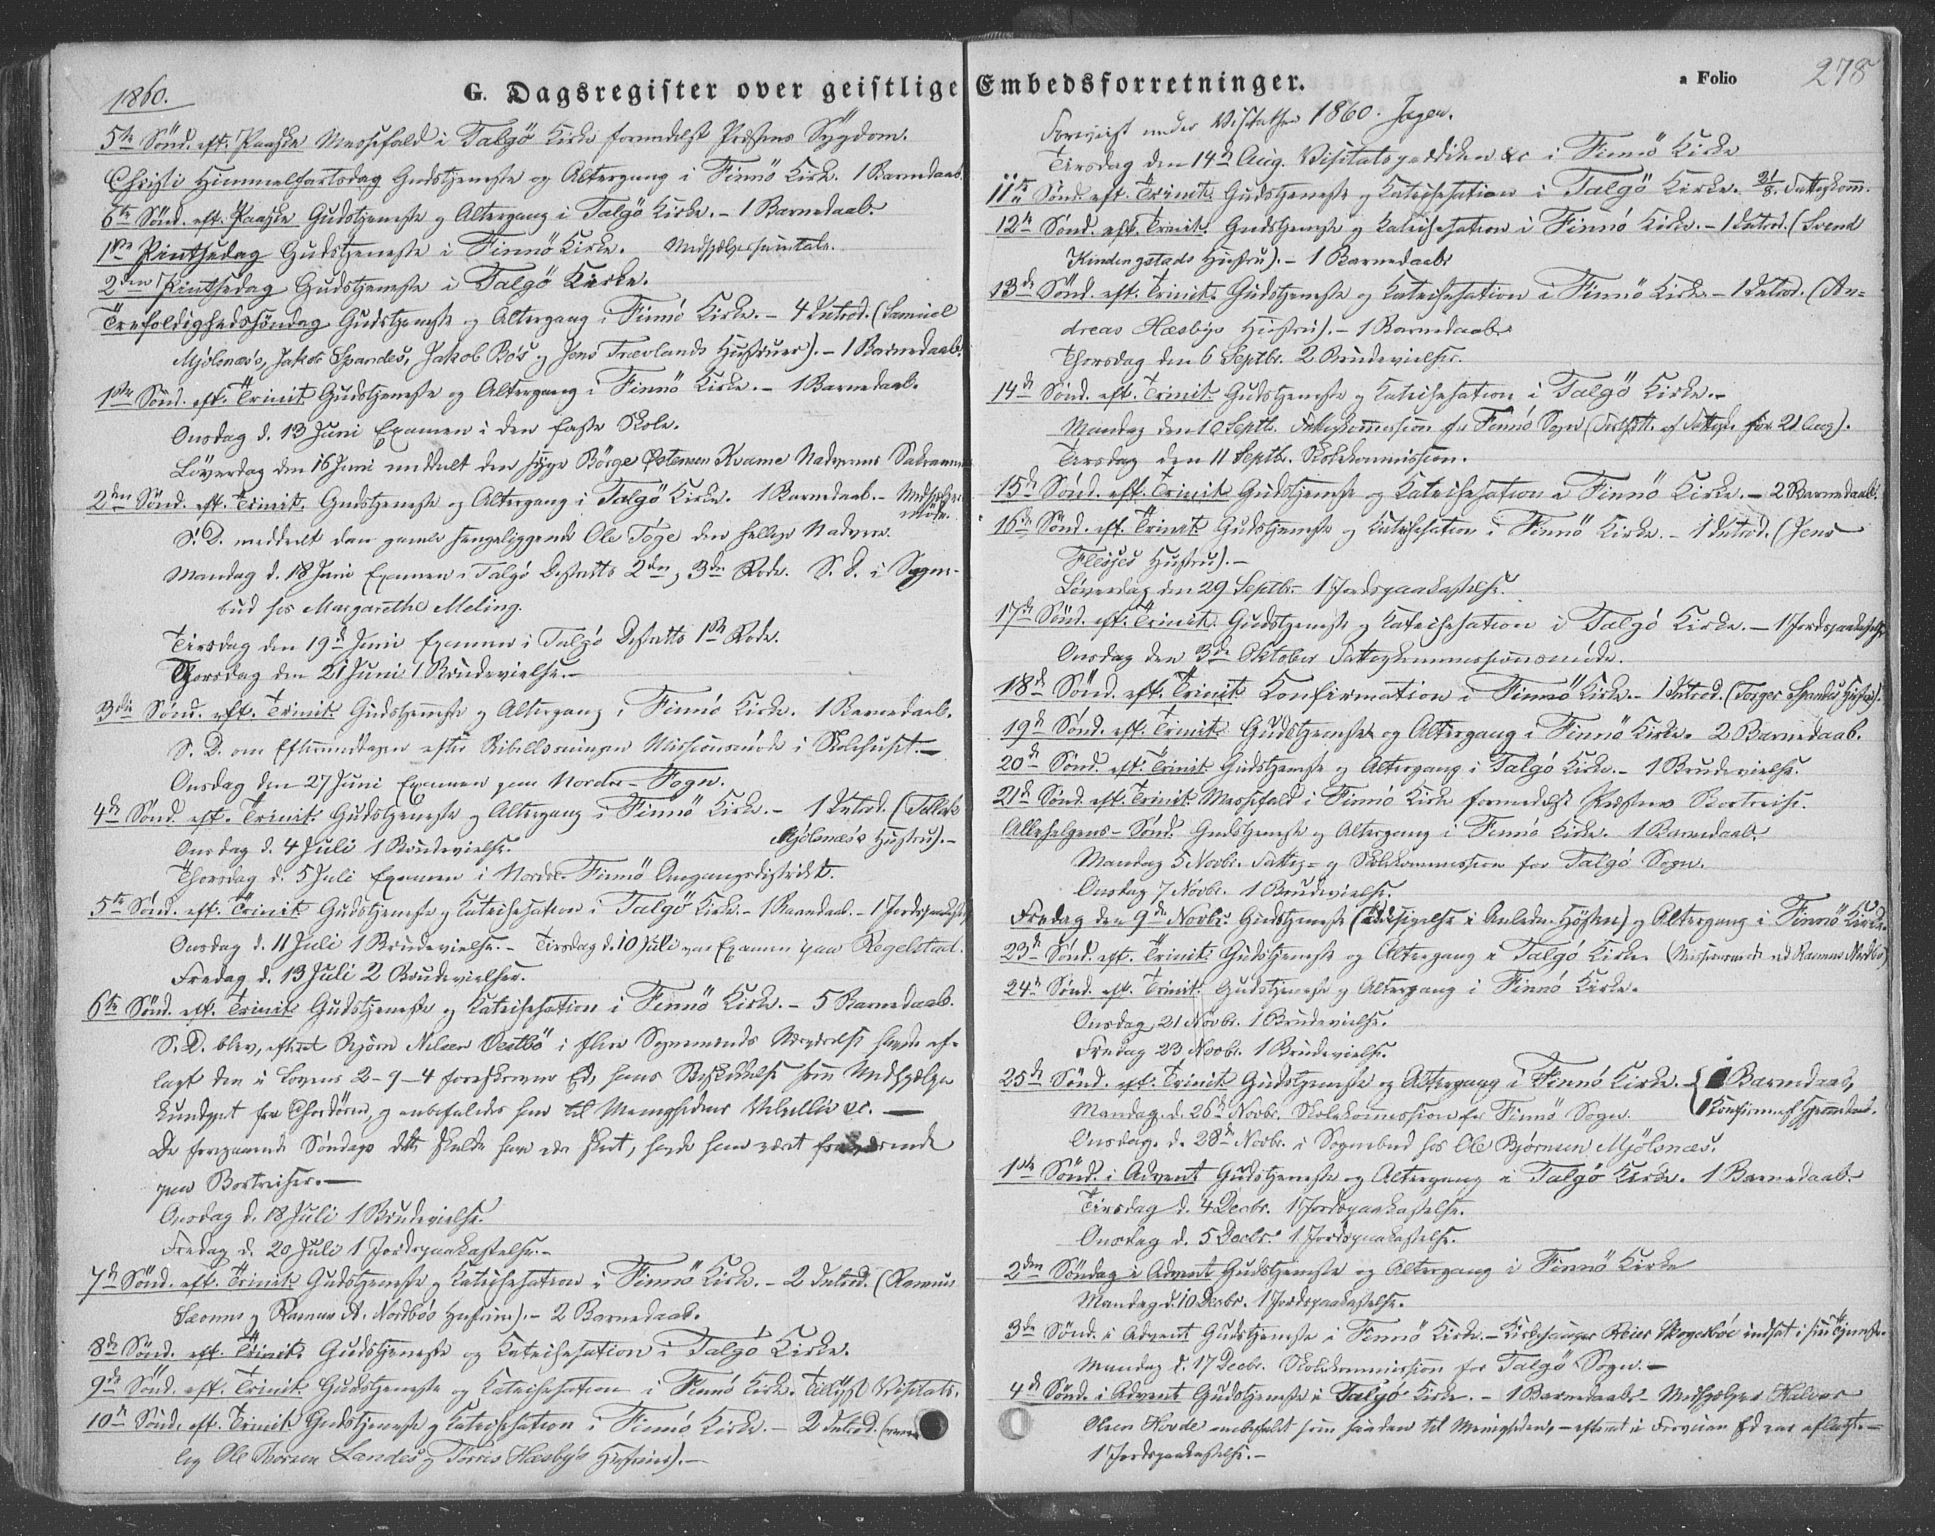 1860.
G. Dagsregister over geistlige
5te Sönd. eft. Paaske Messefald i Talgö Kirke formedelst Præstens Sygdom.
Christi Himmelfartsdag Gudstjeneste og Altergang i Finnö Kirke. 1 Barnedaab.
6te Sönd. eft. Paaske Gudstjeneste og Altergang i Talgö Kirke. – 1 Barnedaab.
1ste Pintsedag Gudstjeneste i Finnö Kirke. Medhjælpersamtale.
2den Pintsedag Gudstjeneste i Talgö Kirke.
Trefoldighedssöndag Gudstjeneste og Altergang i Finnö Kirke. – 4 Introd. (Samuel
Mjölsnæs, Jakob Spandes, Jakob Bö's og Jens Trævlands Hustruer). – 1 Barnedaab.
1ste Sönd. eft. Trinit. Gudstjeneste og Altergang i Finnö Kirke. – 1 Barnedaab.
Onsdag d. 13 Juni Examen i den faste Skole.
Löverdag den 16 Juni meddelt den syge Börge Petersen Kvame Nadverens
2den Sönd. eft. Trinit. Gudstjeneste og Altergang i Talgö Kirke. 1 Barnedaab. – Medhjælper
möde.
S. D. meddelt den gamle sengeliggende Ole Töge den hellige Nadvere.
Mandag d. 18 Juni Examen i Talgö Distrikts 2den og 3die Rode. S. D. i Sogne-
bud hos Margarethe Meling.
Tirsdag den 19de Juni Examen i Talgö Distrikts 1ste Rode.
Thorsdag den 21 Juni 1 Brudevielse. –
3die Sönd. eft. Trinit. Gudstjeneste og Altergang i Finnö Kirke. 1 Barnedaab.
S. D. om Eftermiddagen efter Bibellæsningen Missionsmöde i Skolehuset. –
Onsdag den 27 Juni Examen paa Nordre-Fogn.
4de Sönd. eft. Trinit. Gudstjeneste og Altergang i Finnö Kirke. – 1 Introd. (Tollak
Mjölsnæs Hustru). –
Onsdag d. 4 Juli 1 Brudevielse.
Thorsdag d. 5 Juli Examen i Nordre Finnö Omgangsdistrikt.
5te Sönd. eft. Trinit. Gudstjeneste og Katechisation i Talgö Kirke. – 1 Barnedaab. – 1 Jordspaakastelse
Onsdag d. 11 Juli 1 Brudevielse. – Tirsdag d. 10 Juli var Examen paa Regelstad.
Fredag d. 13 Juli 2 Brudevielser.
6te Sönd. eft. Trinit. Gudstjeneste og Katechisation i Finnö Kirke. – 5 Barnedaab.
S. D. blev, efterat Björn Nilsen Vestbö i flere Sognemænds Nærværelse havde af-
lagt den i Lovens 2-9-4 foreskrevne Ed, hans Beskikkelse som Medhjælper
kundgjort fra Chordören, og anbefaledes han til Menighedens Velvillie &c. –
De foregaaende Söndage dette skulde have været skeet, havde han været fraværende
paa Bortreiser. –
Onsdag d. 18 Juli 1 Brudevielse.
Fredag d. 20 Juli 1 Jordspaakastelse. –
7de Sönd. eft. Trinit. Gudstjeneste og Katechisation i Finnö Kirke. – 2 Introd. (Rasmus
og Rasmus A. Nordbös Hustruer). – 2 Barnedaab.
8de Sönd. eft. Trinit. Gudstjeneste og Katechisation i Talgö Kirke.
9de Sönd. eft. Trinit. Gudstjeneste og Katechisation i Finnö Kirke. Tillyst Visitats.
10de Sönd. eft. Trinit. Gudstjeneste og Katechisation i Finnö Kirke. – 2 Introd.
lig Ole Thorsen Landes og Törres Hæsby's Hustruer). –
Embedsforretninger.
a Folio 278
Foreviist under Visitatsen 1860. Jagen.
Tirsdag den 14de Aug. Visitatsprædiken &c i Finnö Kirke
11te Sönd. eft. Trinit. Gudstjeneste og Katechisation i Talgö Kirke. 21/8. Fattigkomm.
12te Sönd. eft. Trinit. Gudstjeneste og Katechisation i Finnö Kirke. – 1 Introd. (Svend
Kindingstads Hustru). – 1 Barnedaab.
13de Sönd. eft. Trinit. Gudstjeneste og Katechisation i Finnö Kirke – 1 Introd. (An-
dreas Hæsbys Hustru). – 1 Barnedaab.
Thorsdag den 6 Septbr. 2 Brudevielser.
14de Sönd. eft. Trinit. Gudstjeneste og Katechisation i Talgö Kirke. –
Mandag den 10 Septbr. Fattigkommission for Finnö Sogn (Fortsætt. af for 21 Aug).
Tirsdag den 11 Septbr. Skolekommission.
15de Sönd. eft. Trinit. Gudstjeneste og Katechisation i Finnö Kirke. – 2 Barnedaab.
16de Sönd. eft. Trinit. Gudstjeneste og Katechisation i Finnö Kirke. – 1 Introd. (Jens
Flesjes Hustru). –
Löverdag den 29 Septbr. 1 Jordspaakastelse.
17de Sönd. eft. Trinit. Gudstjeneste og Katechisation i Talgö Kirke. – 1 Jordspaakastelse
Onsdag den 3de Oktober Fattigkommissionsmöde.
18de Sönd. eft. Trinit. Konfirmation i Finnö Kirke. – 1 Introd. (Torger Spandes Hustru).
19de Sönd. eft. Trinit. Gudstjeneste og Altergang i Finnö Kirke. 2 Barnedaab.
20de Sönd. eft. Trinit. Gudstjeneste og Altergang i Talgö Kirke. – 1 Brudevielse.
21de Sönd. eft. Trinit. Messefald i Finnö Kirke formedelst Præstens Bortreise.
Allehelgens-Sönd. Gudstjeneste og Altergang i Finnö Kirke. 1 Barnedaab.
Mandag 5 Novbr. Fattig- og Skolekommission for Talgö Sogn.
Onsdag 7 Novbr. 1 Brudevielse.
Fredag den 9de Novbr. Gudstjeneste (Taksigelse i Anledn. Hösten) og Altergang i Finnö Kirke.
23de Sönd. eft. Trinit. Gudstjeneste og Altergang i Talgö Kirke. (Missionsmöde ved Rasmus Nordbö)
24de Sönd. eft. Trinit. Gudstjeneste og Altergang i Finnö Kirke.
Onsdag 21 Novbr. 1 Brudevielse.
Fredag 23 Novbr. 1 Brudevielse.
25de Sönd. eft. Trinit. Gudstjeneste og Altergang i Finnö Kirke. { 1 Barnedaab,
Mandag. d. 26de Novbr. Skolekommission for Finnö Sogn. 1 Konfirm. af Hjemmedaab.
Onsdag. d. 28de Novbr. i Sognebud hos Ole Bjørnsen Mjölsnæs.
1ste Sönd. i Advent Gudstjeneste og Altergang i Talgö Kirke. 1 Barnedaab.
Tirsdag d. 4 Decbr. 1 Jordspaakastelse.
Onsdag d. 5 Decbr. 1 Jordspaakastelse.
2den Söndag i Advent Gudstjeneste og Altergang i Finnö Kirke
Mandag d. 10 Decbr. 1 Jordspaakastelse.
3die Sönd. i Advent Gudstjeneste i Finnö Kirke. – Kirkesanger Reier Skogerboe indsat i sin Tjeneste.
Mandag d. 17 Decbr. Skolekommission for Talgö Sogn. –
4de Sönd. i Advent Gudstjeneste i Talgö Kirke. – 1 Barnedaab. – Medhjælper Halvor
Olsen Hovde anbefalet som saadan til Menigheden, – efterat i Forveien Ed var aflagt. –
1 Jordspaakastelse. –